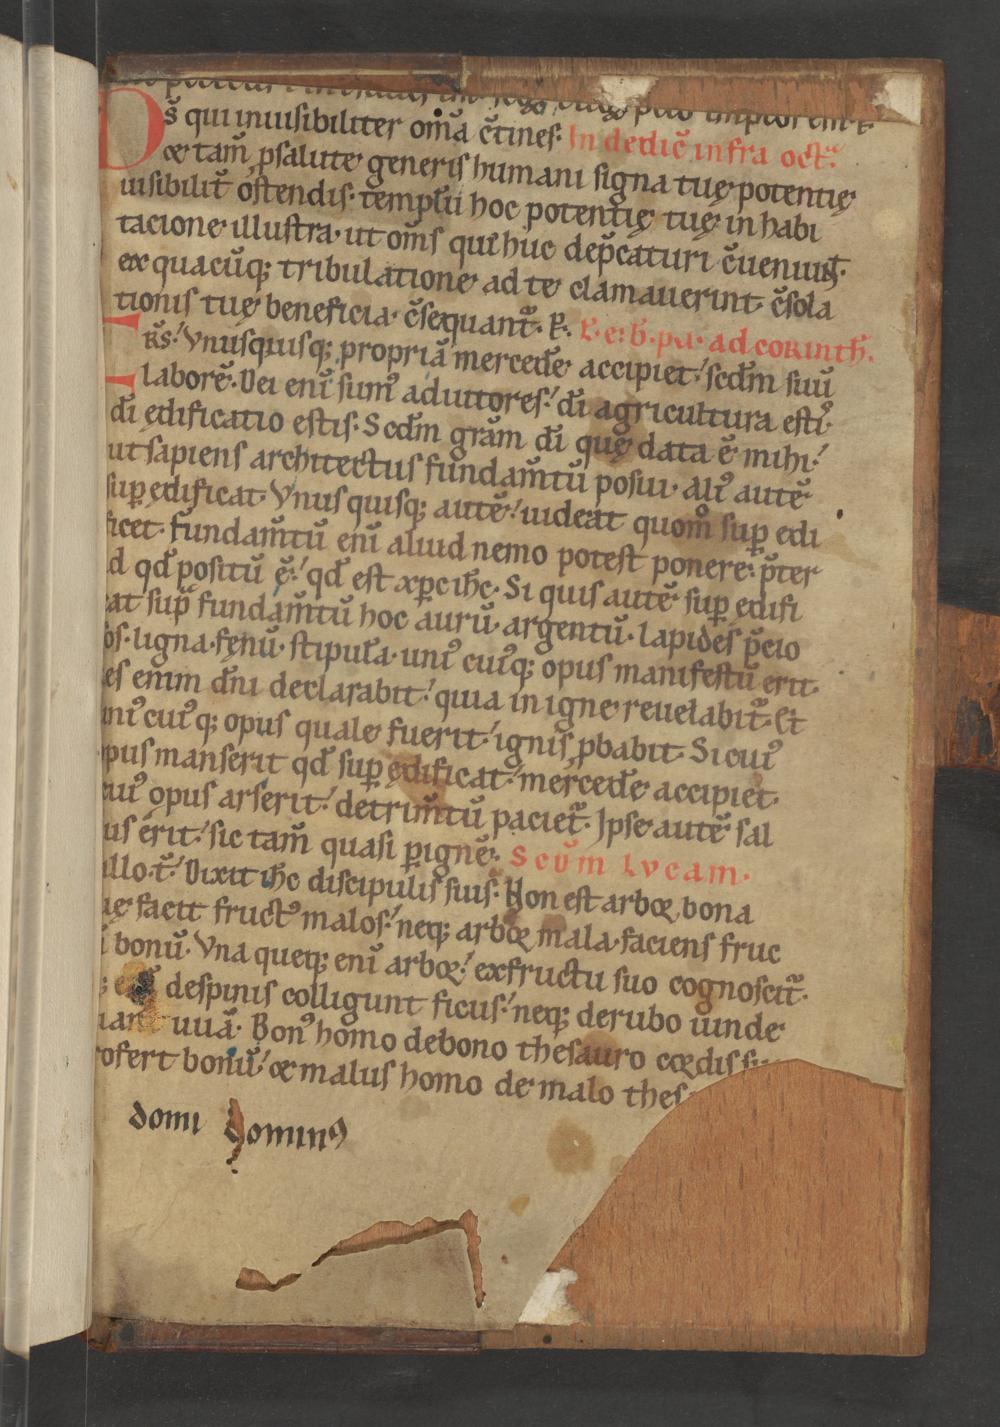 D s̄ qui inuisibiliter om̄a c̄tines· In dedic̄ infra oct̄·
& tam̄ ꝓsalute generis humani signa tuę potentię
uisibilit̄ ostendis· templū hoc potentię tuę in habi
tacione illustra· ut om̄s qui huc dep̄caturi c̄ueniunt·
ex quacūq; tribulatione ad te clamauerint c̄sola
tionis tuę beneficia c̄sequant᷑· P. L· e· b̄· pa· ad corinth̄·
F R̄s· Vnusquisq; propriā mercedē accipiet· scd̄m suū
laborē· Dei eni sum᷒ adiutores· di agricultura esti᷒·
di ędificatio estis· Scd̄m gram̄ di quę data ē mihi·
ut sapiens architectus fundam̄tū posui· ali᷒ autē
suꝑędificat· Vnus quisq; autē uideat quom̊ suꝑ edi
ficet· fundam̄tū eni aliud nemo potest ponere· p̄ter
id qd̄ positū ē· qd̄ est xp̄c ih̄c· Si quis autē suꝑ ędifi
cat sup̄ fundam̄tū hoc aurū· argentū· lapides p̄cio
os· ligna· fęnū· stipula· uni᷒ cui᷒q; opus manifestū erit·
es enim dn̄i declarabit· quia in igne reuelabit᷑· Et
uni᷒ cui᷒q; opus quale fuerit· ignis ꝓbabit· Si cui᷒
opus manserit qd̄ suꝑędificat· mercedē accipiet·
cui᷒ opus arserit· detrim̄tū paciet᷑· Ipse autē sal
us erit· sic tam̄ quasi ꝑignē· Scdm Lvcam·
illo· t̄· Dixit ih̄c discipulis suis· Non est arbor bona
quę facit fruct᷒ malos· neq; arbor mala faciens fruc
ū bonū· Vna queq; eni arbor· exfructu suo cognoscit᷑·
; despinis colligunt ficus· neq; derubo uinde
iant uuā· Bon᷒ homo debono thesauro cordis su
rofert bonū· & malus homo de malo thes
domi domin᷒